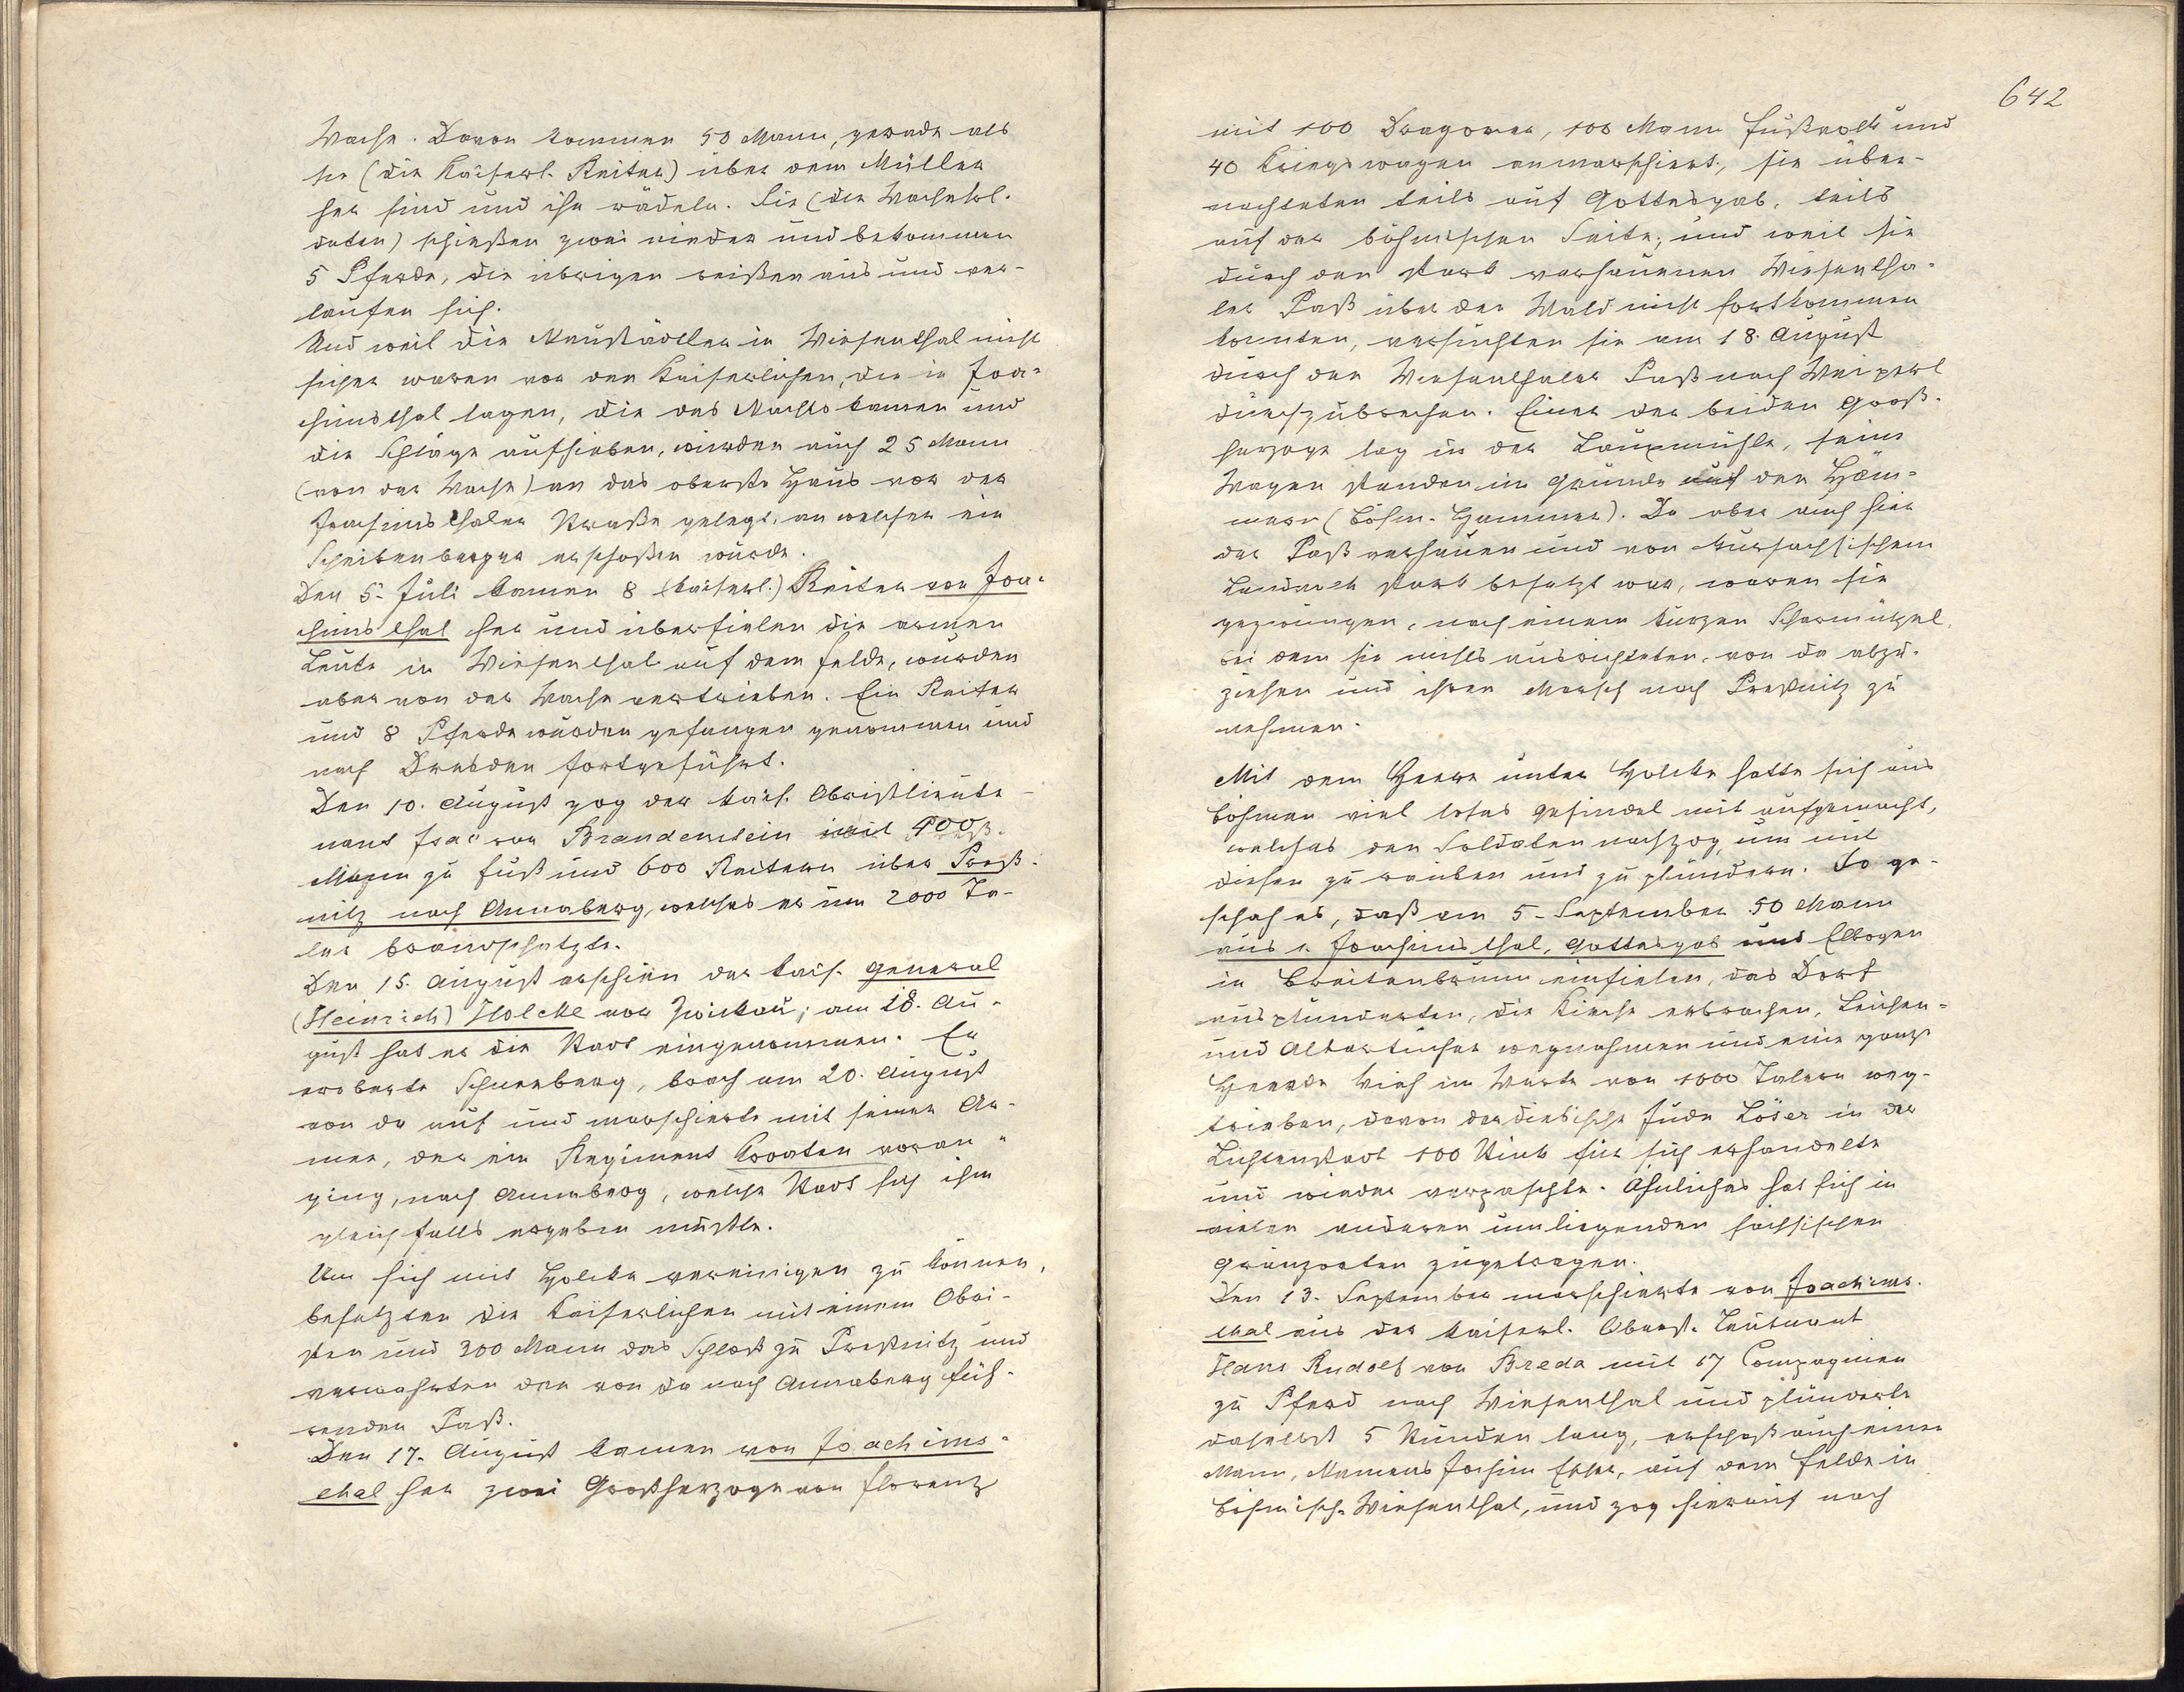 Wache. Davon kommen 50 Mann, gerade als
sie (die Kaiserl. Reiter) über dem Müller
her sind und ihn rädeln. Sie (die Wachesol-
daten) schießen zwei nieder und bekommen
5 Pferde, die übrigen reißen aus und ver-
laufen sich.
Und weil die Neustädtler in Wiesenthal nicht
sicher waren vor den Kaiserlichen, die in Joa-
chimsthal lagen, die des Nachts kamen und
die Schläge aufhieben, wurden auch 25 Mann
(von der Wache) an das oberste Haus vor der
Joachimsthaler Straße gelegt, an welcher ein
Scheibenberger erschoßen wurde.
Den 5. Juli kamen 8 (kaiserl.) Reiter von Joa-
chimsthal her und überfielen die armen
Leute in Wiesenthal auf dem Felde, wurden
aber von der Wache vertrieben. Ein Reiter
und 8 Pferde wurden gefangen genommen und
nach Dresden fortgeführt.
Den 10. August zog der kais. Obristlieute-
nant Isac von Brandenstein mit 400
Mann zu Fuß und 600 Reitern über Preß-
nitz nach Annaberg, welches er um 2000 Ta-
ler brandschatzte.
Den 15. August erschien der kais. General
(Heinrich) Holcke vor Zwickau; am 18. Au-
gust hat er die Stadt eingenommen. Er
eroberte Schneeberg, brach am 20. August
von da auf und marschierte mit seiner Ar-
mee, der ein Regiment Kroaten voran-
ging, nach Annaberg, welche Stadt sich ihm
gleichfalls ergeben mußte.
Um sich mit Holcke vereinigen zu können,
besetzten die Kaiserlichen mit einem Obri-
sten und 300 Mann das Schloß zu Preßnitz und
verwahrten den von da nach Annaberg füh-
renden Paß.
Den 17. August kamen von Joachims-
thal her zwei Großherzoge von Florenz
642
mit 100 Dragoner, 100 Mann Fußvolk und
40 Kriegswagen anmarschiert, sie über-
nachteten teils auf Gottesgab, teils
auf der böhmischen Seite, und weil sie
durch den stark verhauenen Wiesentha-
ler Paß über den Wald nicht fortkommen
konnten, versuchten sie am 18. August
durch den Wiesenthaler Paß nach Weipert
durchzubrechen. Einer der beiden Groß-
herzoge lag in der Lauxmühle, seine
Wagen standen im Grunde auf den Häm-
mern (Böhm. Hammer). Da aber auch hier
der Paß verhauen und von kursächsischem
Landvolk stark besetzt war, waren sie
gezwungen, nach einem kurzen Scharmützel,
bei dem sie nichts ausrichteten, von da abzu-
ziehen und ihren Marsch nach Preßnitz zu
nehmen.
Mit dem Heere unter Holcke hatte sich aus
Böhmen viel loses Gesindel mit aufgemacht,
welches den Soldaten nachzog, um mit
diesen zu rauben und zu plündern. So ge-
schah es, daß am 5. September 50 Mann
aus Joachimsthal, Gottesgab und Elbogen
in Breitenbrunn einfielen, das Dorf
ausplünderten, die Kirche erbrachen, Leichen-
und Altartücher wegnahmen und eine ganze
Heerde Vieh im Werte von 1000 Talern weg-
trieben, davon der diebische Jude Löser in der
Lichtenstadt 100 Stück für sich erhandelte
und wieder verpaschte. Ähnliches hat sich in
vielen anderen umliegenden sächsischen
Gränzorten zugetragen.
Den 13. September marschierte von Joachims-
thal aus der kaiserl. Oberst. Leutnant
Hans Rudolf von Breda mit 17 Compagnien
zu Pferd nach Wiesenthal und plünderte
daselbst 5 Stunden lang, erschoß auch einen
Mann, Namens Jochim, auf dem Felde in
Böhmisch-Wiesenthal, und zog hierauf nach